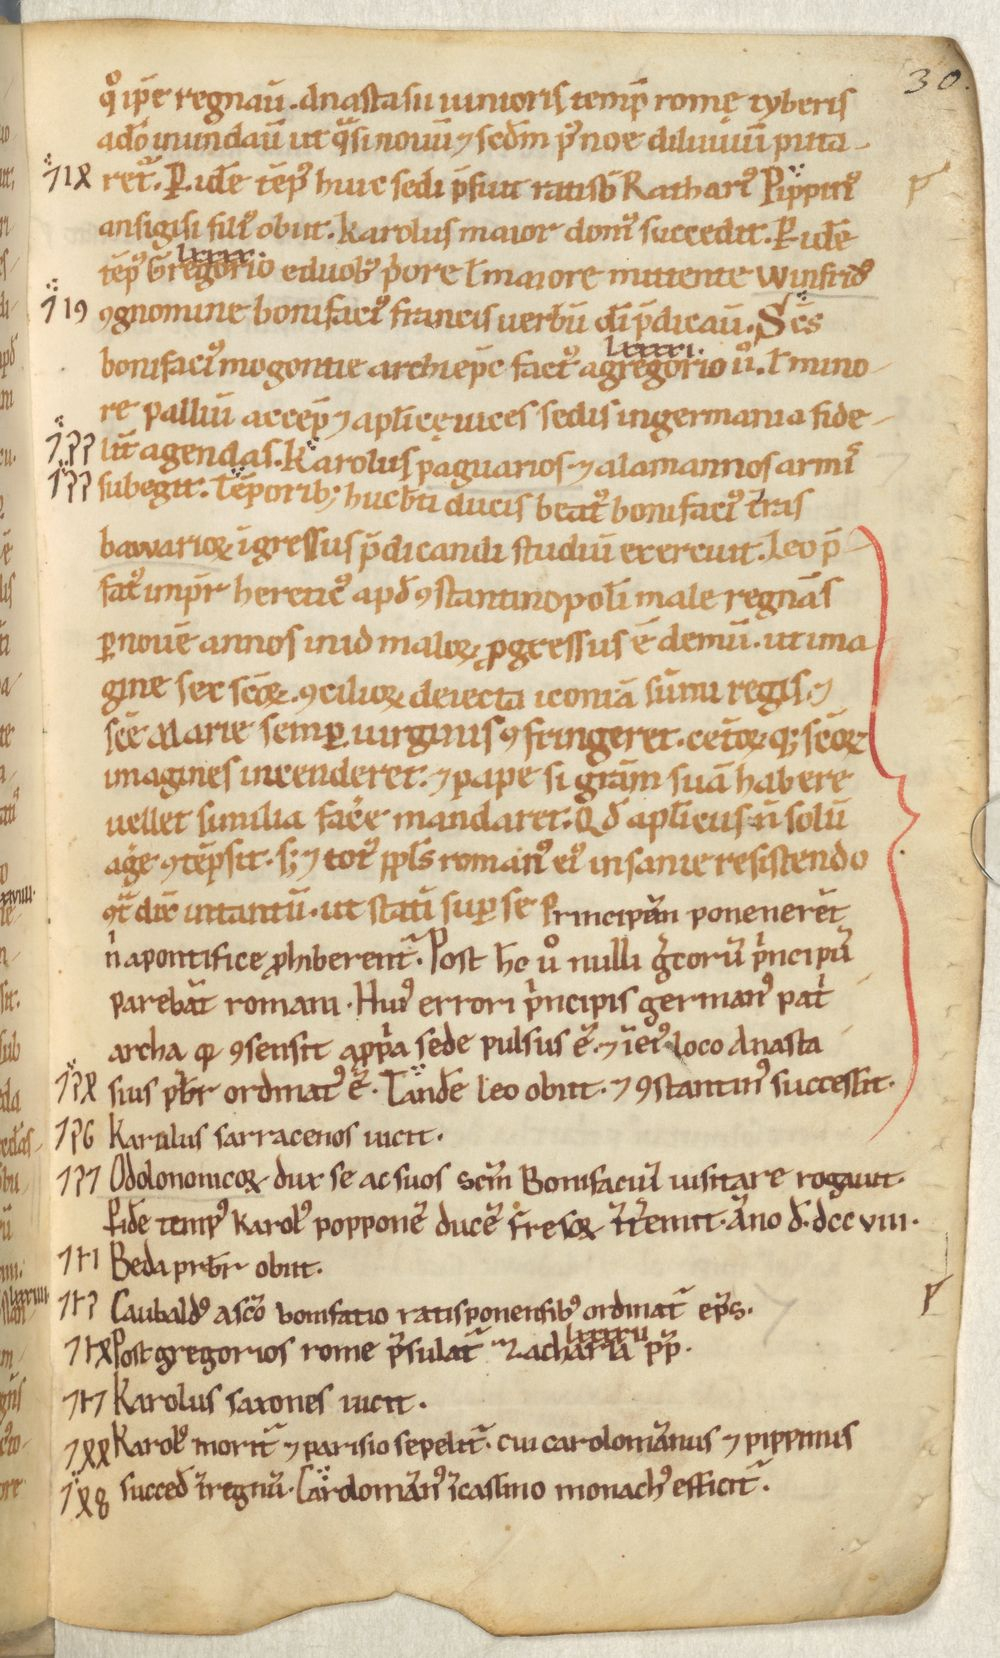 30.
qͦ ip̄e regnaū. Anastasii iunioris temp̄ romę tyberis
adō inundaū ut q̄si nouū ⁊ sedm̄ p᷒ noe diluuiū puta-
714 ret᷑. P̲ idē tēp᷒ huic sedi p̄fuit ratisƀ Rathari᷒ Pippin᷒
ansigisi fili᷒ obiit. karolus maior dom᷒ succedit. P̲ idē
lxxxx.
tēp᷒ Gregorio eduob᷒ p̄ore ł maiore mittente winfrid᷒
719 ꝯgnomine bonifaci᷒ francis uerbū dī p̄dicaū. Sc̄s
lxxxxi.
bonifaci᷒ mogontie archiep̄c fact᷒ a gregorio uͦ. ł mino-
re palliū accep̄ ⁊ apl̄icę uices sedis in germania fide-
722 lit̄ agendas. Karolus paguarios ⁊ alamannos armi᷒
723 subegit. Tēporib; hucb̄ti ducis beat᷒ bonifaci᷒ t̄ras
bawarioꝝ īgressus p̄dicandi studiū exercuit. Leo p̄
fat᷒ imp̄r heretic᷒ apd̄ ꝯstantinopoli male regnās
ꝑ nouē annos in id maloꝝ ꝓgressus ē demū. ut ima
gine sex sc̄oꝝ. ꝯcilioꝝ deiecta iconiā sūmi regis ⁊
sc̄e Marie semꝑ uirginis ꝯfringeret. cet̄oꝝ q; sc̄oꝝ
imagines incenderet. ⁊ pape si grām suā habere
uellet similia fac̄e mandaret. Qd̄ apl̄icus n̄ solū
aḡe ꝯtēpsit. s; ⁊ tot᷒ ppl̄s roman᷒ ei᷒ insanie resistendo
ꝯt̄dix̄ intantū. ut statī suꝑ se principem poneneret̄
n̄ a pontifice ꝓhiberent᷑. Post hc̄ uͦ nulli ḡcorū p̄ncipū
parebāt romani. Hui᷒ errori p̄ncipis german᷒ pat̄
archa ꝙ ꝯsensit a pp̄a sede pulsus ē. ⁊ ī ei᷒ loco Anasta
724 sius pb̄r ordinat᷒ ē. Tandē Leo obiit. ⁊ ꝯstantin᷒ successit.
726 Karolus sarracenos uicit.
727 Odolonoricoꝝ dux se ac suos scm̄ Bonifaciū uisitare rogauit.
Eidē temp᷒ karol᷒ popponē ducē fresoꝝ īt̄emit. Āno d̄. dccviii.
731 Beda prb̄r obiit.
732 Gaubald᷒ a sc̄o bonifatio ratisponensib᷒ ordinat᷑ ep̄s.
lxxxxii
734 Post gregorios rome p̄sulat᷑ Zacharia pp̄.
737 Karolus saxones uicit.
744 Karol᷒ morit᷑ ⁊ parisio sepelit᷑. cui carolomānus ⁊ pippinus
748 succed̄ ī regnū. Carolomān᷒ ī cassino monach᷒ efficit᷑.